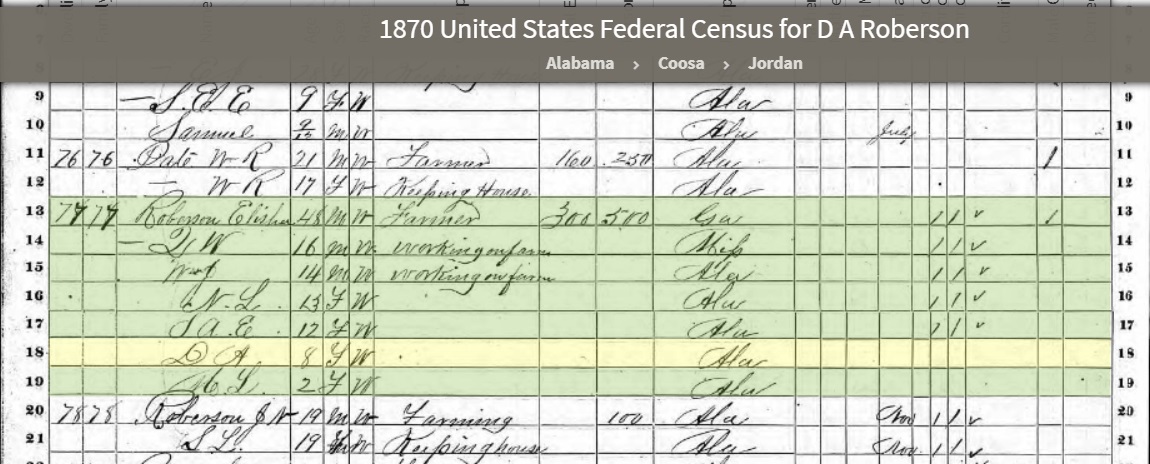 1870 United States Federal Census for D A Roberson
Alabama › Coosa › Jordan
9 — S. E E 9 F W Ala 9
10 Samuel 9/12 M W Ala July 10
11 76 76 Pate W R 21 M W Farmer 160 250 Ala 1 11
12 — W R 17 F W Keeping House Ala 12
13 77 77 Roberson Elisha 48 M W Farmer 300 500 Ga 1 1 ✓ 1 13
14 — W 16 M W working on farm Miss 1 1 ✓ 14
15 14 M W working on farm Ala 1 1 ✓ 15
16 N. L. 13 F W Ala 1 1 ✓ 16
17 S A. E. 12 F W Ala 1 1 ✓ 17
18 D A. 8 F W Ala 18
19 M L 2 F W Ala 19
20 78 78 Roberson J N 19 M W Farming 100 Ala Nov 1 1 ✓ 20
21 S. L. 19 F W Keeping house Ala Nov. 1 1 ✓ 21